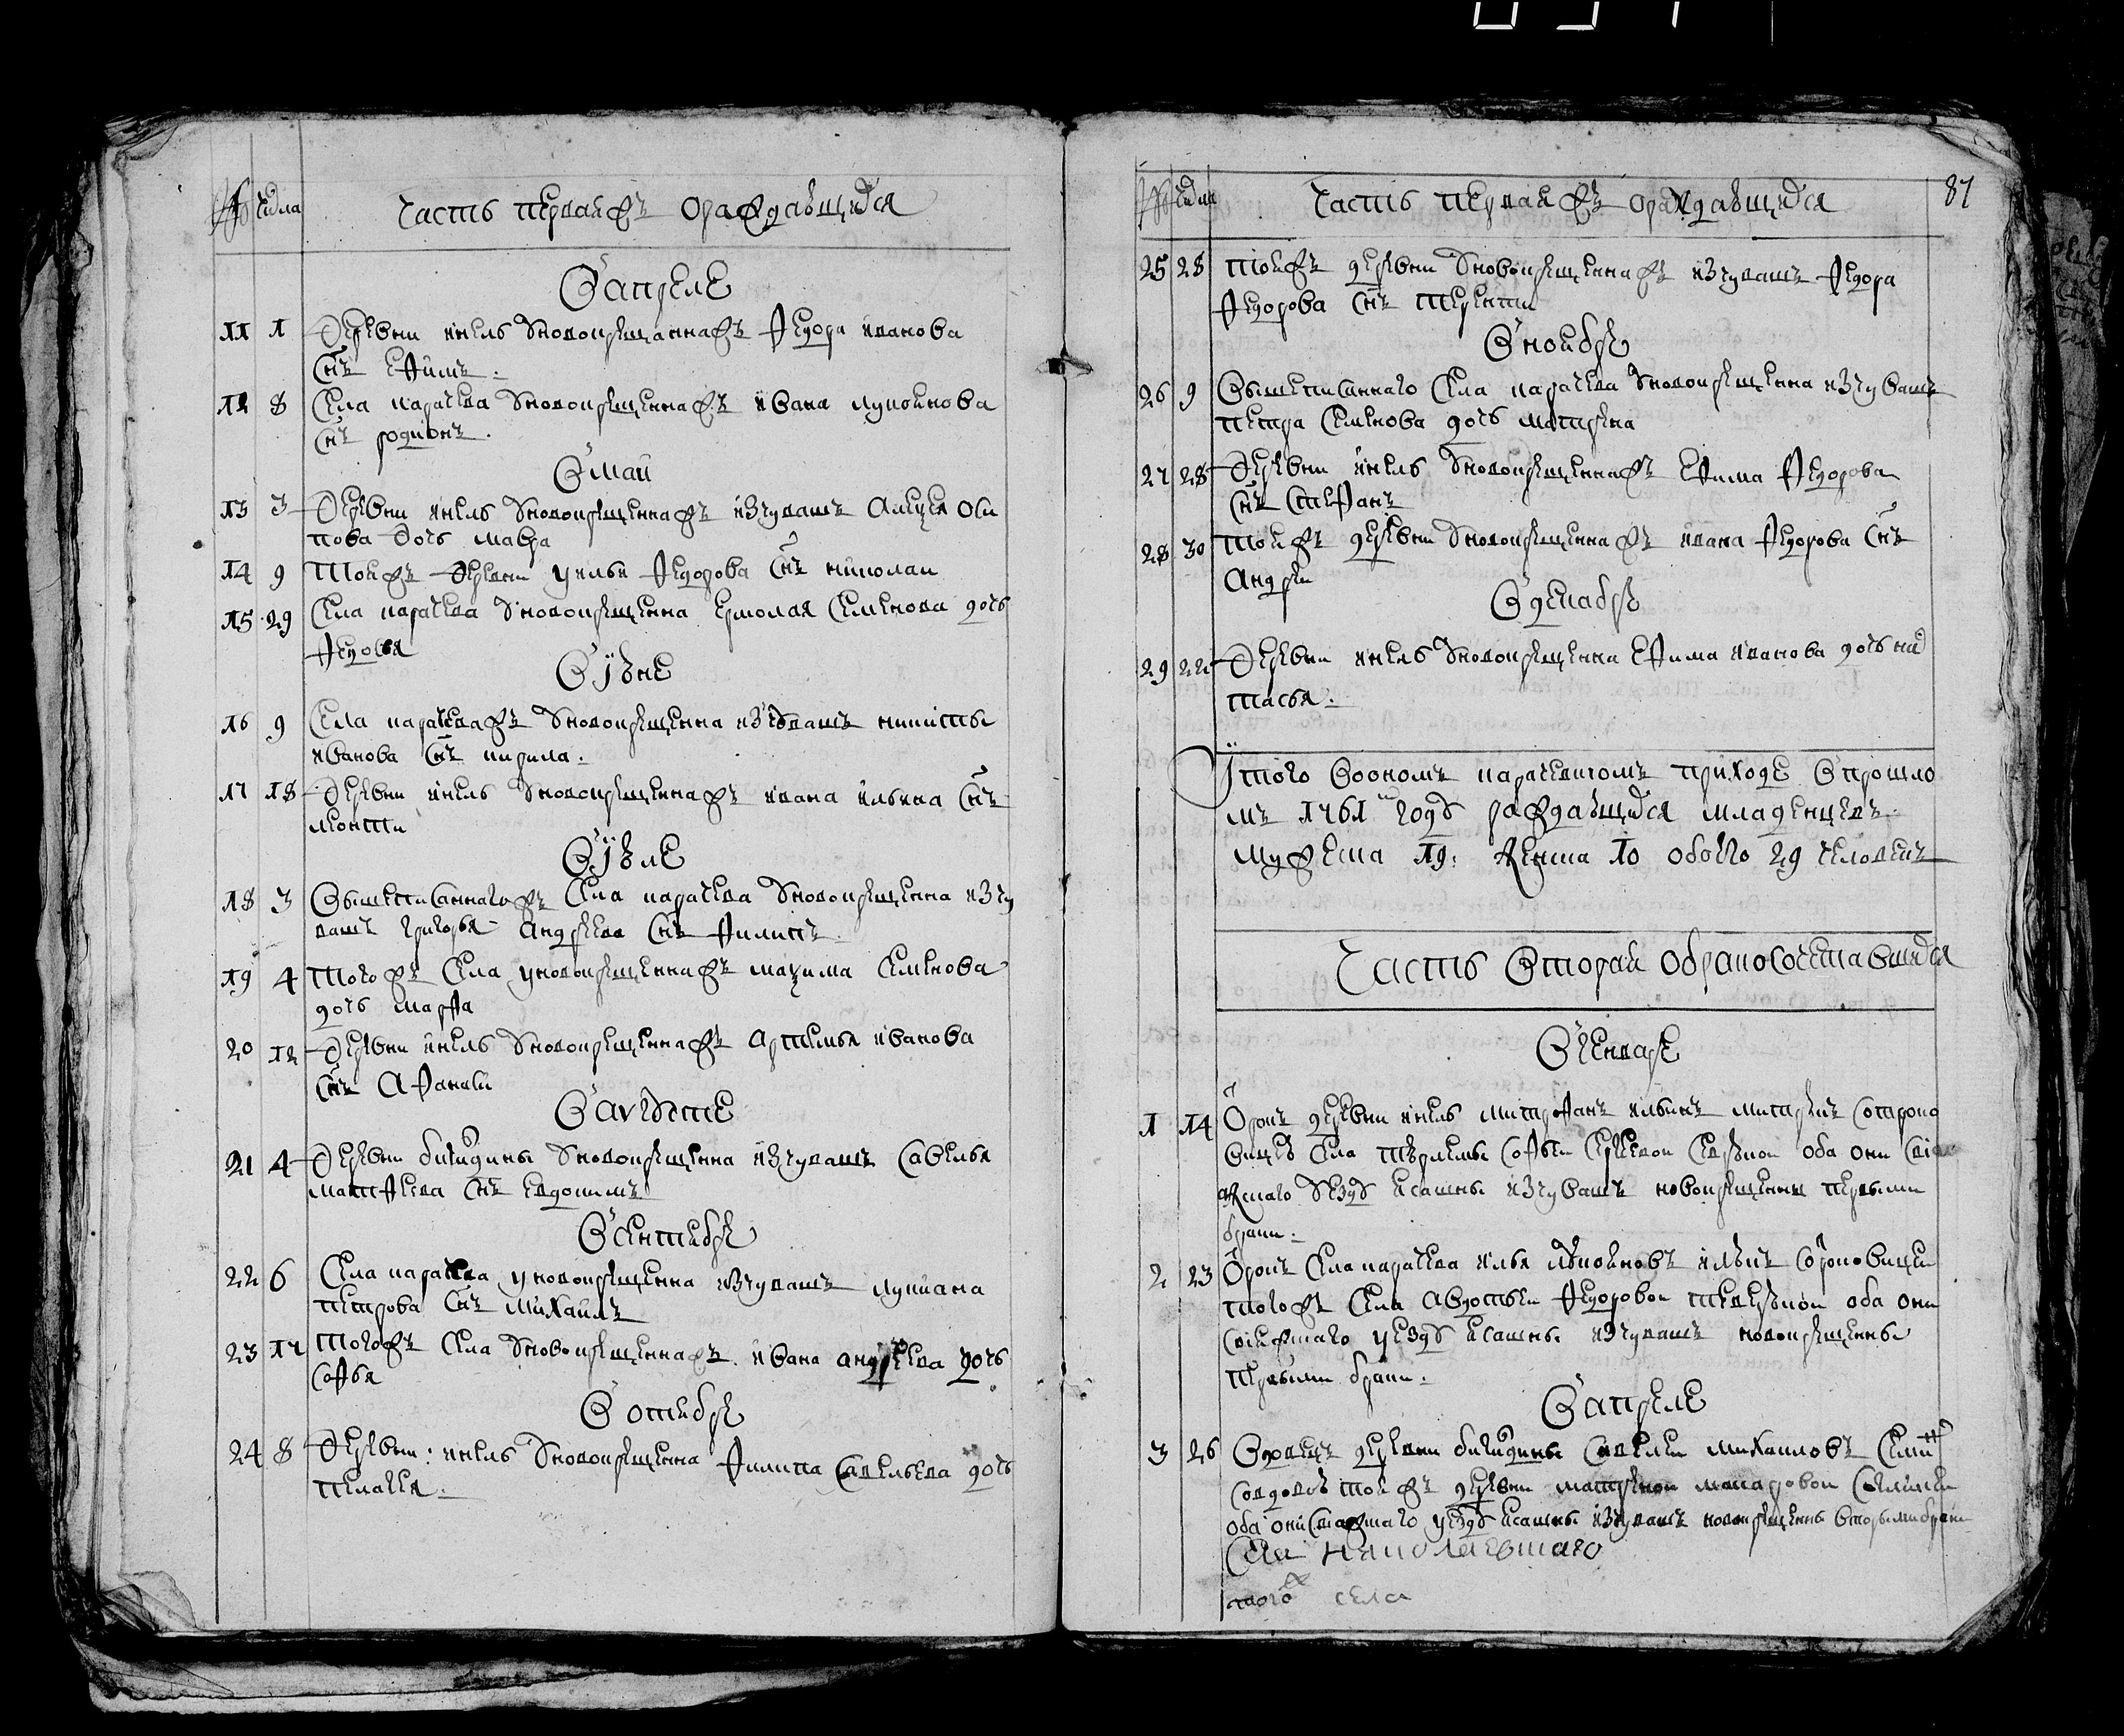 № числа Часть перваяжъ ораждавшихся
Въ апреле
11 1 Деревни инель уновокрещеннажъ Федора иванова
снъ Ефимъ.
12 8 Села карачева уновокрещеннажъ ивана лукоянова
снъ родионъ.
Въ маи
13 3 Деревни инель уновокрещеннажъ изчувашъ Алексея Оси
пова дочь мавра
14 9 Тоежъ деревни уильи Федорова снъ николаи
15 29 Села карачева уновокрещенна ермолая Семенова дочь
Федосья
Въ июне
16 9 Села карачеважъ уновокрещенна изчувашъ никиты
иванова снъ кирила.
17 18 Деревни инель уновокрещеннажъ ивана ильина снъ
Въ июле
18 3 Вышеписаннагожъ села карачева уновокрещенна изчу
вашъ григорья андреева снъ Филипъ.
19 4 тогожъ села уновокрещеннажъ максима Семенова
дочь марфа
20 12 Деревни инель уновокрещеннажъ артемья иванова
снъ Афанасеи
Въ августе
21 4 Деревни уновокрещенна изчувашъ Савелья
матфеева снъ евдокимъ
Въ сентябре
22 6 Села карачева уновокрещенна изчувашъ лукиана
петрова снъ михаилъ
23 17 тогожъ села уновокрещеннажъ ивана андреева дочь
софья
Въ октябре
24 8 Деревни: инель уновокрещенна Филипа Савельева дочь
пелагея.
№ числа Часть перваяжъ ораждавшихся 87
25 28 тоежъ деревни уновокрещеннажъ изчувашъ Федора
Федорова снъ терентеи
Въ ноябре
26 9 Вышеписаннаго села карачева уновокрещенна изчувашъ
петра Семенова дочь матрена
27 28 Деревни инель уновокрещеннажъ Ефима Федорова
снъ Стефанъ
28 30 тоежъ деревни уновокрещеннажъ ивана Федорова снъ
Андреи
Въ декабре
29 22 Деревни инель уновокрещенна Ефима иванова дочь на
тасья.
Итого воономъ карачевскомъ приходе впрошло
мъ 1761м году раждавшихся младенцевъ
мужеска 19: женска 10 обоего 29 человекъ
Часть вторая обракосочетавшихся
Въ генваре
1 14 Отрокъ деревни инель митрофанъ ильинъ сотроко
вицею села софьею оба они свия
жскаго уезду ясашны изчувашъ новокрещены первым
браком.
2 23 Отрокъ села карачева илья лукояновъ сотроковицею
тогожъ села Авдотьею Федоровои оба они
свияжскаго уезду ясашны изчувашъ новокрещены
первым браком.
Въ апреле
3 26 Вдовецъ деревни Савелеи михаиловъ
совдовою тоежъ деревни матреною макаровои
оба они свияжскаго уезду ясашны изчувашъ новокрещены вторым браком
тогож села